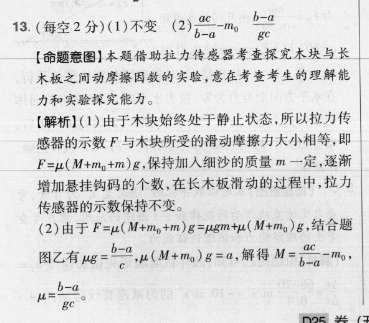 13. (每空2分)(1)不变 (2)ac/(b-a)-m₀ (b-a)/(gc)
【命题意图】本题借助拉力传感器考查探究木块与长
木板之间动摩擦因数的实验,意在考查考生的理解能
力和实验探究能力。
【解析】(1)由于木块始终处于静止状态,所以拉力传
感器的示数F与木块所受的滑动摩擦力大小相等,即
F=μ(M+m₀+m)g,保持加入细沙的质量m一定,逐渐
增加悬挂钩码的个数,在长木板滑动的过程中,拉力
传感器的示数保持不变。
(2)由于F=μ(M+m₀+m)g=μgm+μ(M+m₀)g,结合题
图乙有μg=(b-a)/c,μ(M+m₀)g=a,解得M=ac/(b-a)-m₀,
μ=(b-a)/(gc)。
D25 卷